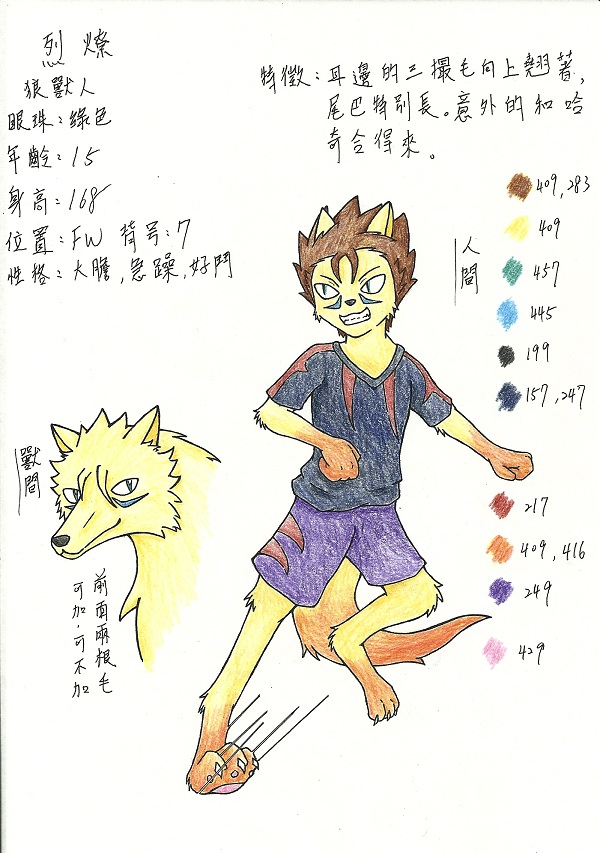 烈燎
狼獸人
眼珠：綠色
年齡：15
身高：168
位置：FW 背号：7
性格：大膽，急躁，好鬥
特徵：耳邊的三撮毛向上翹著，
尾巴特別長。意外的和哈
奇合得來。
人間
409，283
409
457
445
199
157，247
217
409，416
249
429
獸間
前面兩根毛
可加．可不加